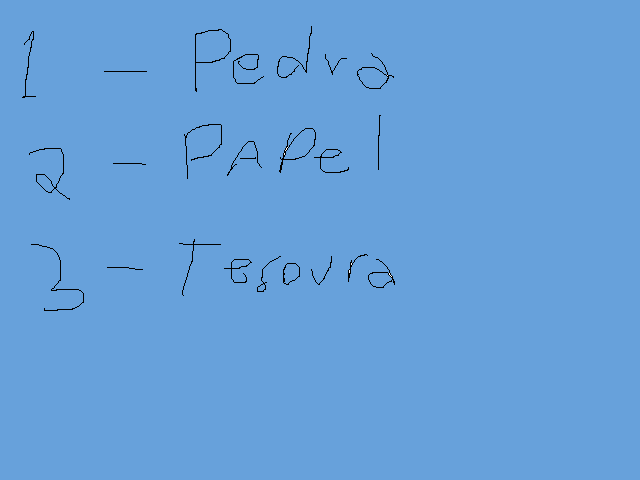 1 - Pedra
2 - PAPel
3 - Tesoura